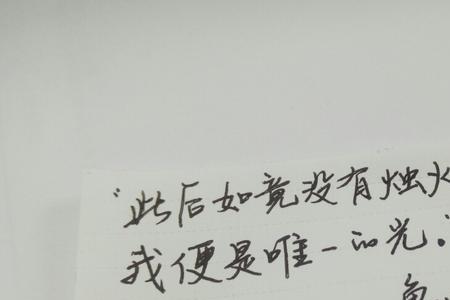 "此后如竟没有烛火
我便是唯一的光.